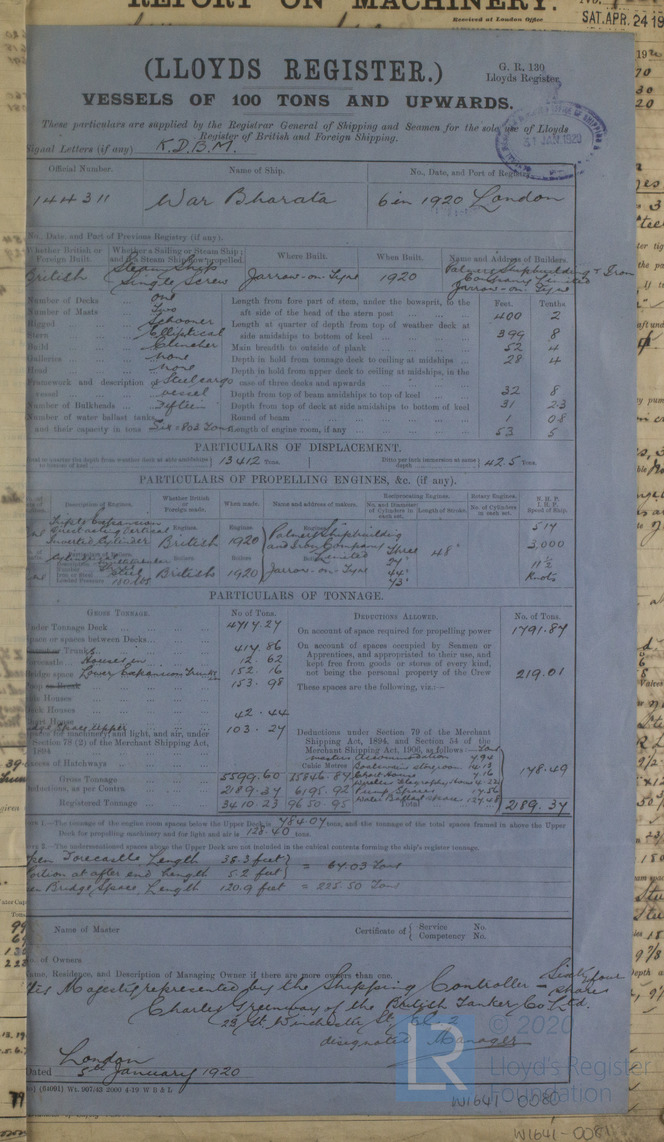 REPORT ON MACHINERY.
Received at London Office
SAT. APR. 24 19
(LLOYDS REGISTER.)
G. R. 130
Lloyds Register.
VESSELS OF 100 TONS AND UPWARDS.
These particulars are supplied by the Registrar General of Shipping and Seamen for the sole use of Lloyds
Register of British and Foreign Shipping.
31 JAN. 1920
Signal Letters (if any) K.D.B.M.
Official Number. Name of Ship. No., Date, and Port of Registry
144311 War Bharata 6 in 1920 London
No., Date, and Port of Previous Registry (if any).
Whether British or Foreign Built. Whether a Sailing or Steam Ship; and if a Steam Ship, how propelled. Where Built. When Built. Name and Address of Builders.
British Steam Ship Single Screw Jarrow-on-Tyne 1920 Palmers Shipbuilding & Iron Company Limited Jarrow-on-Tyne
Feet. Tenths.
Number of Decks ... one Length from fore part of stem, under the bowsprit, to the
Number of Masts ... Two aft side of the head of the stern post ... 400 2
Rigged ... Schooner Length at quarter of depth from top of weather deck at
Stern ... Elliptical side amidships to bottom of keel ... 399 8
Build ... Clencher Main breadth to outside of plank ... 52 4
Galleries ... none Depth in hold from tonnage deck to ceiling at midships ... 28 4
Head ... none Depth in hold from upper deck to ceiling at midships, in the
Framework and description of Steel cargo case of three decks and upwards
vessel ... vessel Depth from top of beam amidships to top of keel ... 32 8
Number of Bulkheads ... Fifteen Depth from top of deck at side amidships to bottom of keel 31 23
Number of water ballast tanks, Round of beam ... 1 08
and their capacity in tons Six = 802 Tons Length of engine room, if any ... 53 5
PARTICULARS OF DISPLACEMENT.
13412 Tons. Ditto per inch immersion at same depth 42.5 Tons.
PARTICULARS OF PROPELLING ENGINES, &c. (if any).
Description of Engines. Whether British or Foreign made. When made. Name and address of makers. Reciprocating Engines. Rotary Engines. N. H. P. I. H. P. Speed of Ship.
No. and Diameter of Cylinders in each set. Length of Stroke. No. of Cylinders in each set.
Triple Expansion Direct acting Vertical Inverted Cylinder
Engines British Engines 1920
Palmers Shipbuilding and Iron Company Limited
Jarrow-on-Tyne
Three 27" 44" 73" 48"
514
3,000
11½ Knots
Steel
Boilers British Boilers 1920
PARTICULARS OF TONNAGE.
GROSS TONNAGE. No of Tons. DEDUCTIONS ALLOWED. No. of Tons.
Under Tonnage Deck ... 4717.27 On account of space required for propelling power 1791.87
Space or spaces between Decks ...
Trunks 417.86 On account of spaces occupied by Seamen or
Forecastle ... Houses in 12.62 Apprentices, and appropriated to their use, and
Bridge space Lower Expansion Trunks 152.16 kept free from goods or stores of every kind,
153.98 not being the personal property of the Crew 219.01
Side Houses These spaces are the following, viz.:—
Deck Houses 42.44
Chart House
Spaces for machinery, and light, and air, under 103.27 Deductions under Section 79 of the Merchant
Section 78 (2) of the Merchant Shipping Act, Shipping Act, 1894, and Section 54 of the
1894 Merchant Shipping Act, 1906, as follows:— Tons
Excess of Hatchways Masters Accommodation 7.94
Cubic Metres Boatswains storeroom 14.13
Gross Tonnage 5599.60 15846.87 Chart House 7.16
Deductions, as per Contra 2189.37 6195.92 Wireless Telegraphy house 4.22 Pump Spaces 17.56 178.49
Registered Tonnage 3410.23 9650.95 Water Ballast space 127.48 Total 2189.37
NOTE 1.—The tonnage of the engine room spaces below the Upper Deck is 784.07 tons, and the tonnage of the total spaces framed in above the Upper
Deck for propelling machinery and for light and air is 128.40 tons.
NOTE 2.—The undermentioned spaces above the Upper Deck are not included in the cubical contents forming the ship's register tonnage.
Open Forecastle Length 38.3 feet
Portion at after end length 5.2 feet = 64.03 Tons
Open Bridge Space Length 120.9 feet = 225.50 Tons
Name of Master Certificate of Service No.
Competency No.
No. of Owners
Name, Residence, and Description of Managing Owner if there are more owners than one.
His Majesty represented by the Shipping Controller – Sixty four shares
Charles Greenway of the British Tanker Co Ltd.
23 Gt. Winchester St EC 2
designated Manager
London
Dated 5th January 1920
(64001) Wt. 907/43 2000 4-19 W B & L
© 2020
LR
Lloyd's Register
Foundation
W1641-0080
W1641-0081